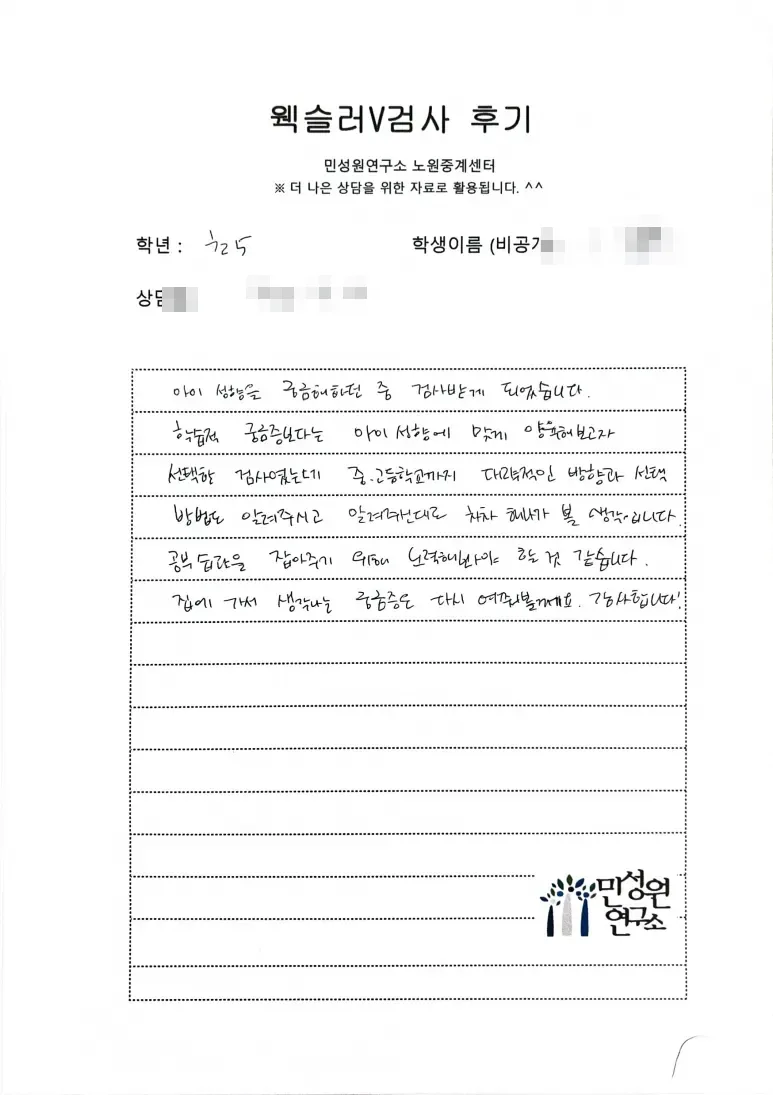 웩슬러V검사 후기
민성원연구소 노원중계센터
※ 더 나은 상담을 위한 자료로 활용됩니다. ^^
학년 : 초5 학생이름 (비공개
상담
아이 성향을 궁금해하던 중 검사받게 되었습니다.
학습적 궁금증보다는 아이 성향에 맞게 양육해보고자
선택한 검사였는데 중.고등학교까지 대략적인 방향과 선택
방법도 알려주시고 알려주신대로 차차 해나가 볼 생각입니다.
공부 습관을 잡아주기 위해 노력해봐야 하는 것 같습니다.
집에 가서 생각나는 궁금증은 다시 여쭤볼께요. 감사합니다!
민성원
연구소